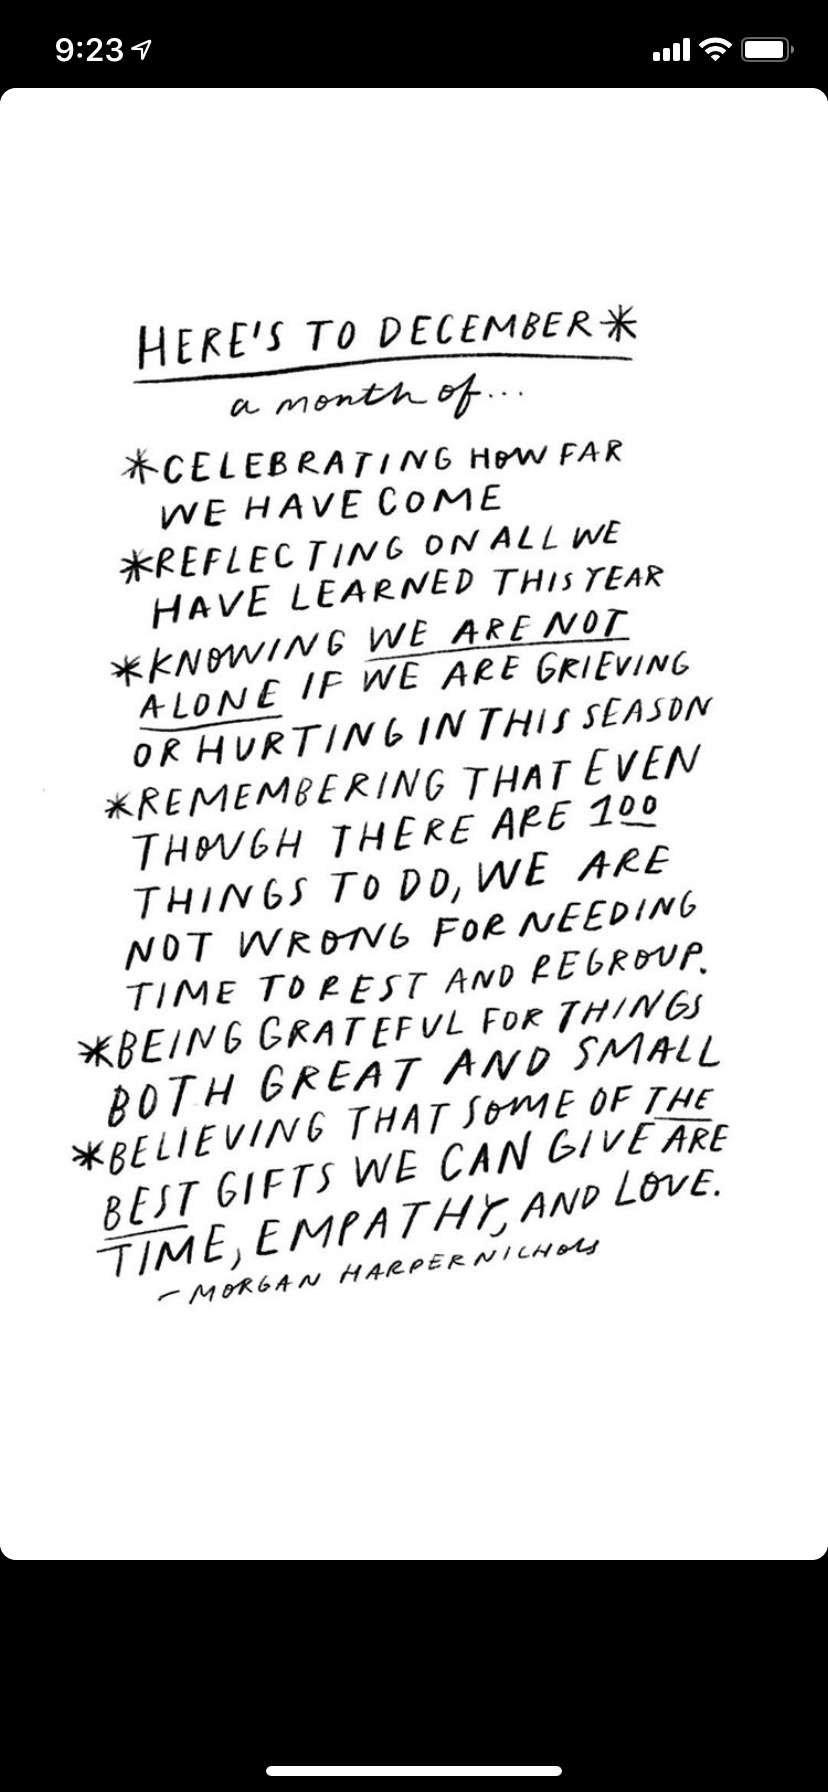 9:23
HERE'S TO DECEMBER*
a month of...
*CELEBRATING HOW FAR
WE HAVE COME
*REFLECTING ON ALL WE
HAVE LEARNED THIS YEAR
*KNOWING WE ARE NOT
ALONE IF WE ARE GRIEVING
OR HURTING IN THIS SEASON
*REMEMBERING THAT EVEN
THOUGH THERE ARE 100
THINGS TO DO, WE ARE
NOT WRONG FOR NEEDING
TIME TO REST AND REGROUP.
*BEING GRATEFUL FOR THINGS
BOTH GREAT AND SMALL
*BELIEVING THAT SOME OF THE
BEST GIFTS WE CAN GIVE ARE
TIME, EMPATHY, AND LOVE.
- MORGAN HARPER NICHOLS